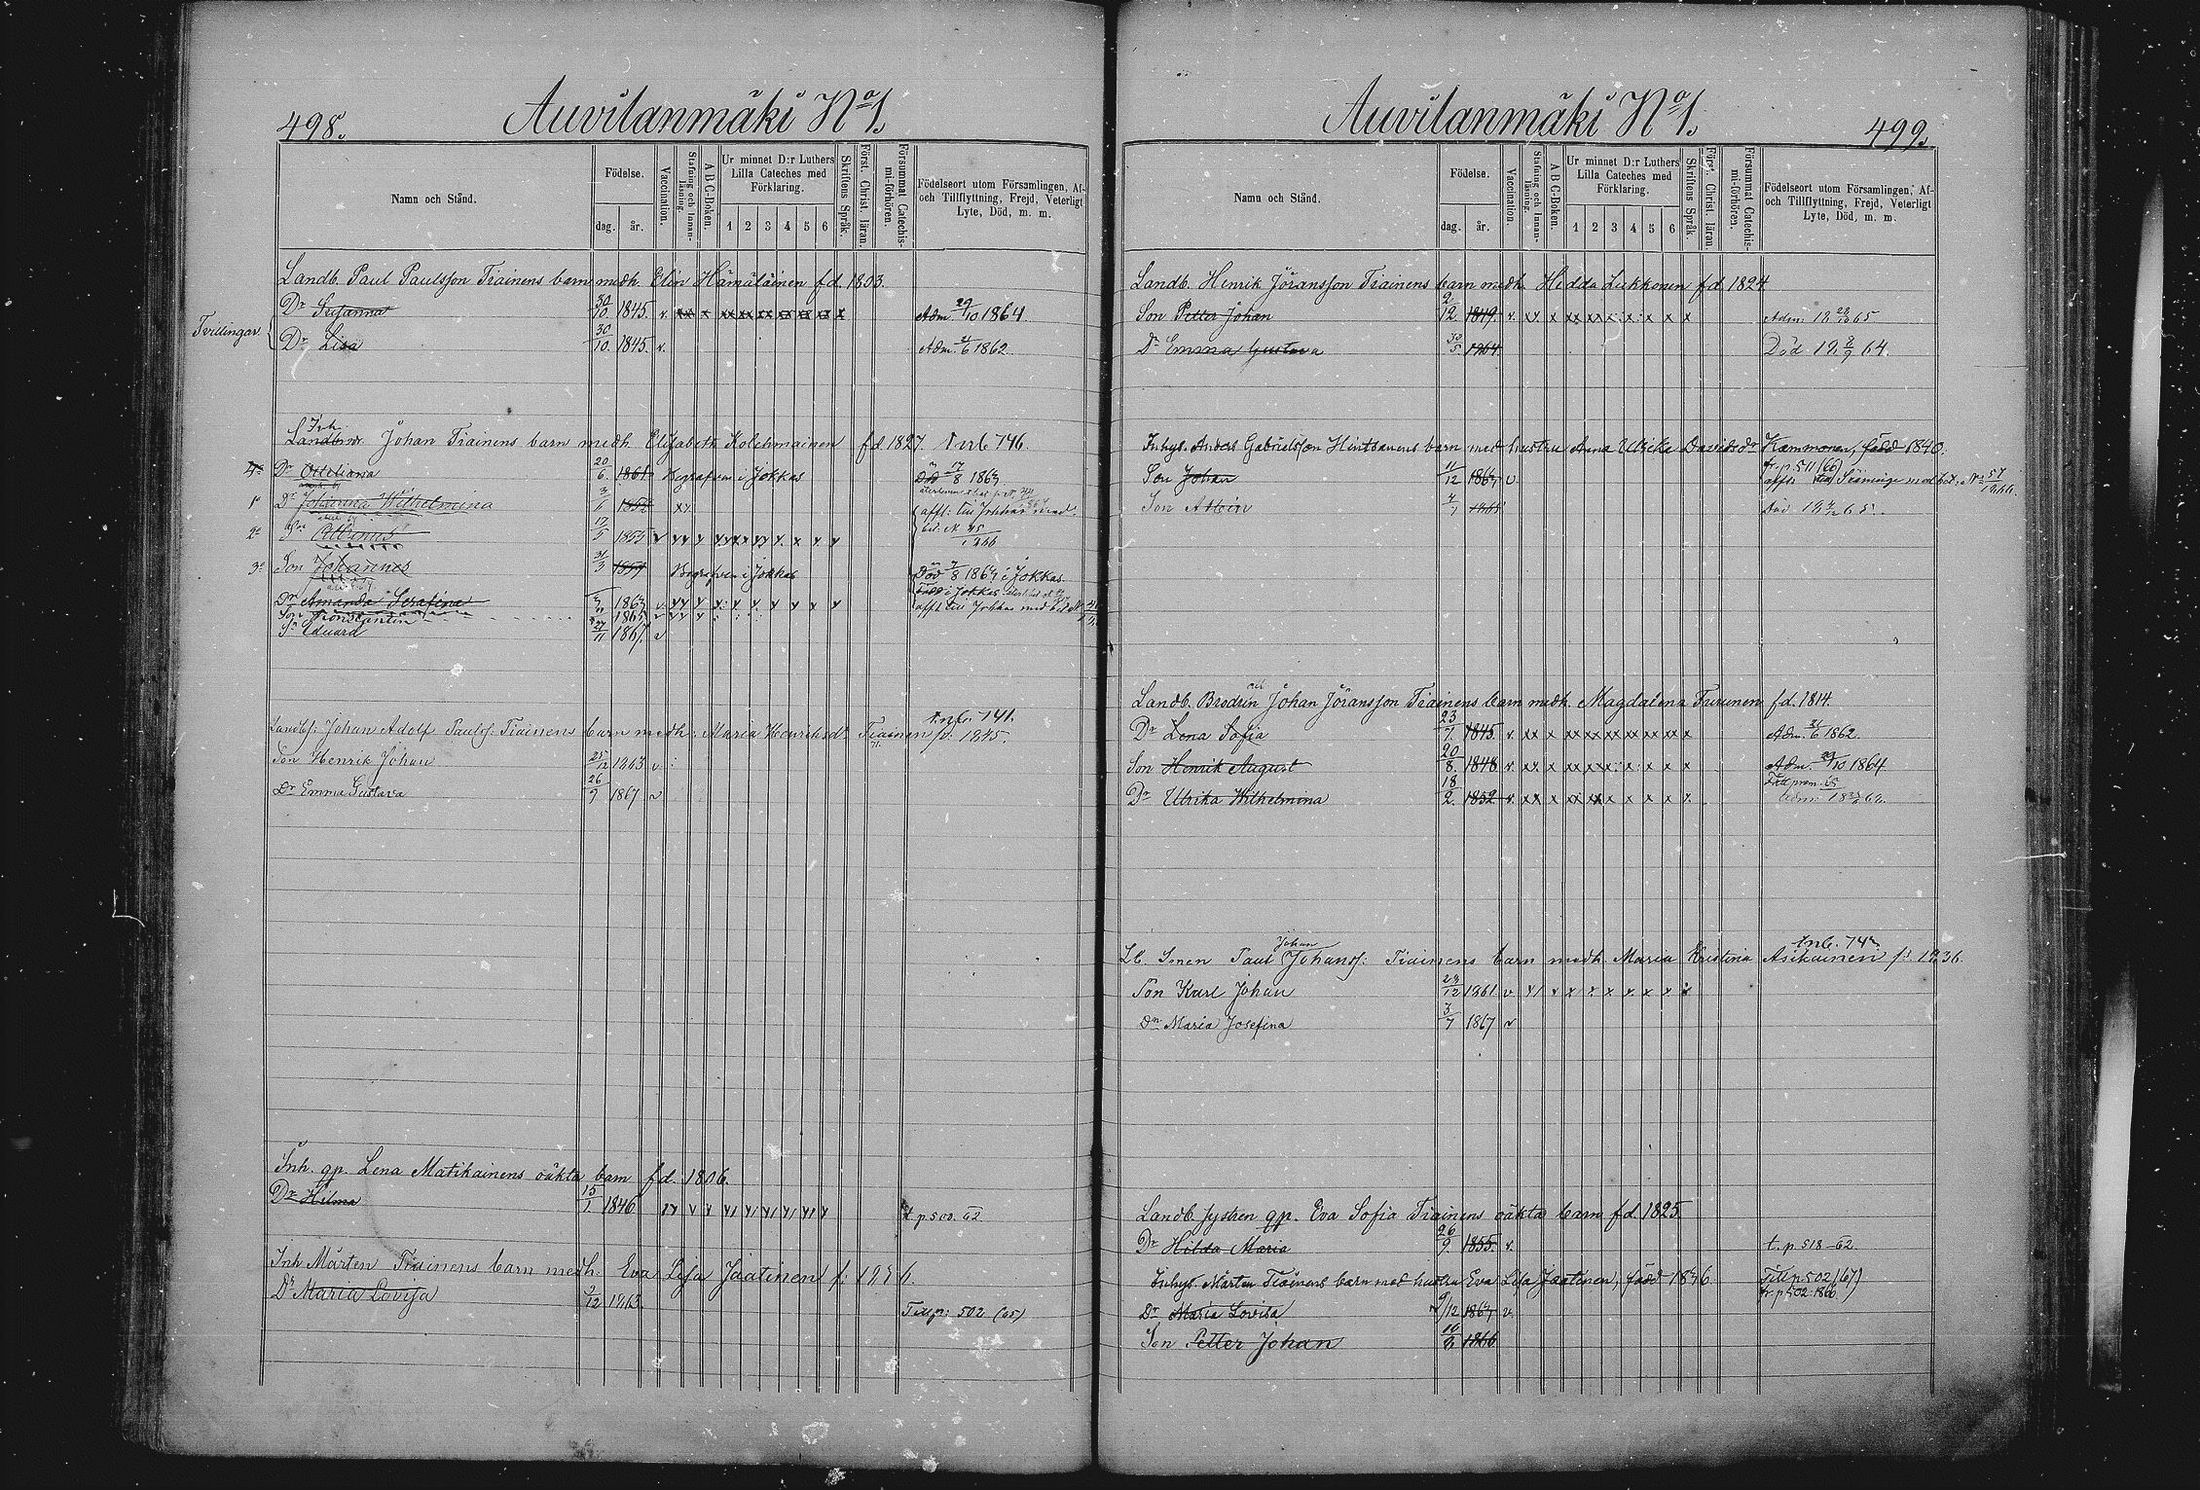 498.
Auvilanmäki No 1.
Namn och Stånd.
Födelse.
dag.
år.
Vaccination.
Stafning och Innan-läsning.
A B C-Boken.
Ur minnet D:r Luthers
Lilla Cateches med
Förklaring.
1 2 3 4 5 6
Skriftens Språk.
Först. Christ. läran.
Försummat Catechis-mi-förhören.
Födelseort utom Församlingen, Af-
och Tillflyttning, Frejd, Veterligt
Lyte, Död, m. m.
Landb. Paul Paulsson Tiainens barn medh. Elin Hämäläinen f.d. 1803.
Tvillingar
Dr Susanna 30/10 1845. v. xx x xx xx xx xx xx xx x Adm. 29/10 1864.
Dr Lisa 30/10. 1845. v. Adm. 6 1862.
Inh.
Johan Tiainens barn medh. Elisabeth Kolehmainen f.d. 1827. 746.
4o Dr Otteliana 20/6. 1861 Begrafven i Jokkas Död 17/8 1867
1o Dr Johanna Wilhelmina xx affl. till Jokkas med
2o Albinus 17/5 1855 bet. N 45/1866
3o Son Johannes 31/3 1859 Begrafven i Jokkas Död 7/8 1867 i Jokkas
Dr Amanda Serafina 186 född i Jokkas
Son Konstantin 1865 affl till Jokkas med bet. N
Sn Eduard 27/11 1867. v
Landbs: Johan Adolf Pauls: Tiainens barn medh: Maria Henriksdr Tiainen f: 1845. 741.
Son Henrik Johan 25/12 1863 v
Dr Emma Gustava 26/9 1867 v
Inh. qp. Lena Matikainens oäkta barn f.d. 1806.
Dr Hilma 15/1. 1846 t p 500. 62
Inh Mårten Tiainens barn medh: Eva Lisa Jaatinen f: 1836.
Dr Maria Lovisa /12 1863. Till p: 502 (65)
Auvilanmäki No 1.
499.
Namn och Stånd.
Födelse.
dag.
år.
Vaccination.
Stafning och Innan-läsning.
A B C-Boken.
Ur minnet D:r Luthers
Lilla Cateches med
Förklaring.
1 2 3 4 5 6
Skriftens Språk.
Först. Christ. läran.
Försummat Catechis-mi-förhören.
Födelseort utom Församlingen, Af-
och Tillflyttning, Frejd, Veterligt
Lyte, Död, m. m.
Landb. Henrik Jöransson Tiainens barn medh. Hedda Lukkonen f.d 1824
Son Petter Johan 2/12. 1849. v. xx x xx xx x x x x x Adm: 18 65
Dr Emma Gustava 30/5. 1864. Död 18 8/9 64.
Inhys. Anders Gabrielsson Hintsanens barn med hustru Anna Ulrika Davidsdr Kammonen, född 1840.
Son Johan 11/12 1863 v fr. p 511 (66)
affl. till Säminge med bet. No 57/1866.
Son Albin Död 18 65.
Landb. Brodrin Johan Jöransson Tiainens barn medh. Magdalena Turunen f.d. 1814.
Dr Lena Sofia 23/7. 1845. v. xx x xx xx xx xx xx xx x Adm. 6 1862.
Son Henrik August 20/8. 1848. v. xx x xx xx x x x x x Adm. 29/10 1864.
Dr Ulrika Wilhelmina 18/2. 1852 v. xx x xx x x x x x x
Lb. Sonen Paul Johans: Tiainens barn medh Maria Kristina Asikainen f: 1836.
Johan
Son Karl Johan /12 1861 v
Dr Maria Josefina 3/7 1867 v
Landb. systren qp. Eva Sofia Tiainens oäkta barn f.d 1825.
Dr Hilda Maria 26/9. 1855. v. t. p 518-62.
Inhys. Mårten Tiainens barn med hustru Eva Lisa Jaatinen, född 1836. Till p 502 (67)
fr. p 502 1866.
Dr Maria Lovisa 9/12 1863 v.
Son Petter Johan 1866